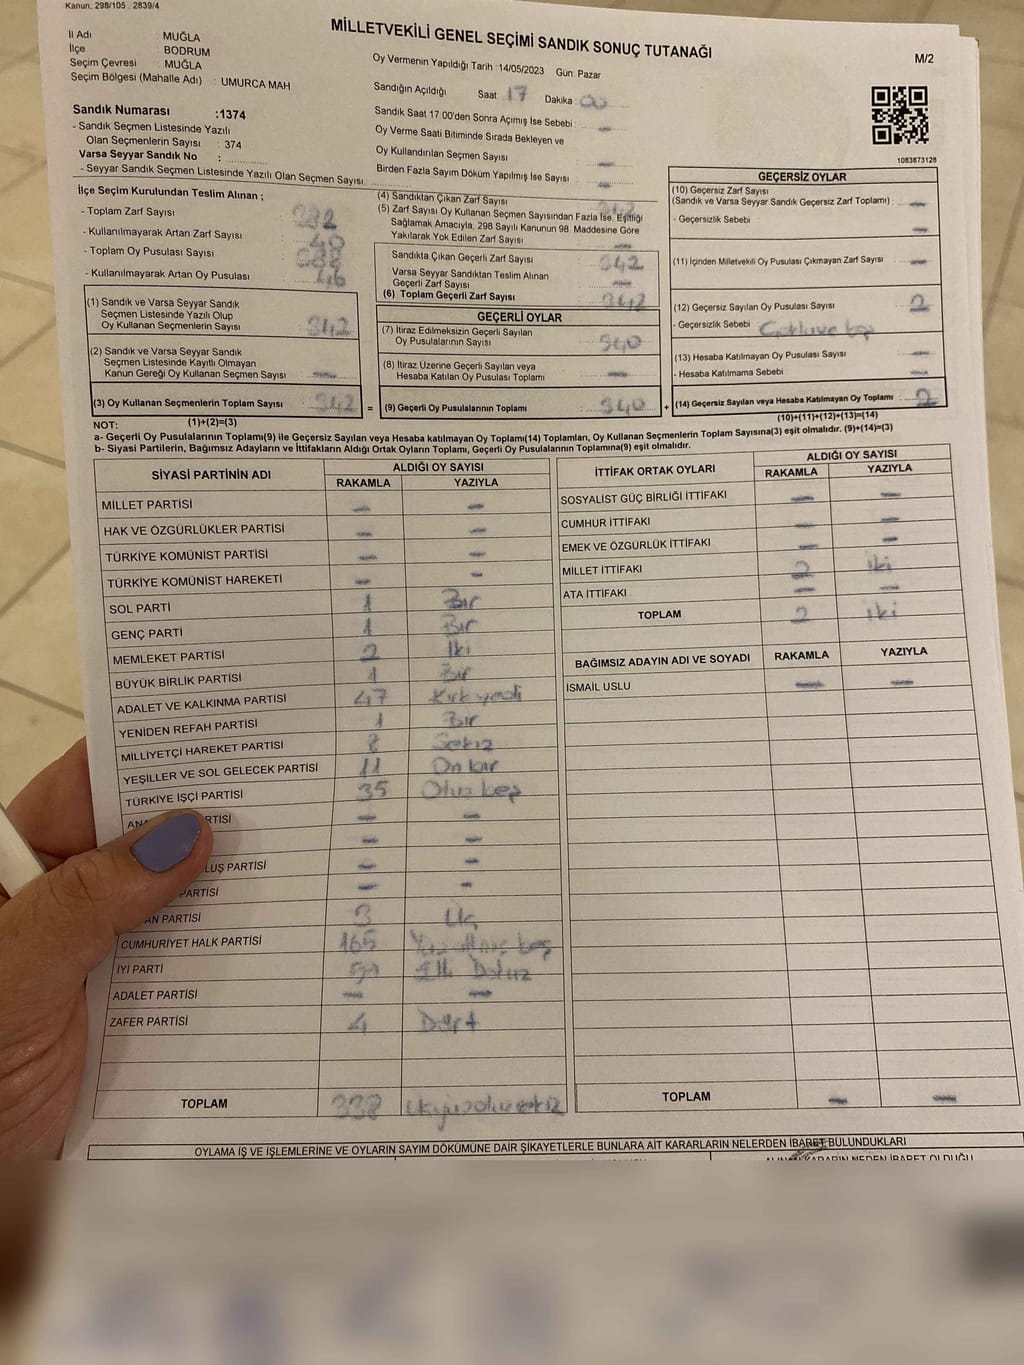 Kanun, 298/105 , 2839/4
MİLLETVEKİLİ GENEL SEÇİMİ SANDIK SONUÇ TUTANAĞI
M/2
İl Adı : MUĞLA
İlçe : BODRUM
Seçim Çevresi : MUĞLA
Seçim Bölgesi (Mahalle Adı) : UMURCA MAH
Oy Vermenin Yapıldığı Tarih :14/05/2023 Gün: Pazar
Sandığın Açıldığı Saat 17 Dakika : 00
Sandık Numarası :1374
- Sandık Seçmen Listesinde Yazılı
Olan Seçmenlerin Sayısı : 374
Varsa Seyyar Sandık No :
- Seyyar Sandık Seçmen Listesinde Yazılı Olan Seçmen Sayısı
Sandık Saat 17.00'den Sonra Açımış İse Sebebi : -
Oy Verme Saati Bitiminde Sırada Bekleyen ve
Oy Kullandırılan Seçmen Sayısı : -
Birden Fazla Sayım Döküm Yapılmış İse Sayısı : -
1083873128
İlçe Seçim Kurulundan Teslim Alınan ;
- Toplam Zarf Sayısı
- Kullanılmayarak Artan Zarf Sayısı : 40
- Toplam Oy Pusulası Sayısı
- Kullanılmayarak Artan Oy Pusulası : 46
(1) Sandık ve Varsa Seyyar Sandık
Seçmen Listesinde Yazılı Olup
Oy Kullanan Seçmenlerin Sayısı : 342
(2) Sandık ve Varsa Seyyar Sandık
Seçmen Listesinde Kayıtlı Olmayan
Kanun Gereği Oy Kullanan Seçmen Sayısı : -
(3) Oy Kullanan Seçmenlerin Toplam Sayısı : 342
(1)+(2)=(3)
(4) Sandıktan Çıkan Zarf Sayısı : 342
(5) Zarf Sayısı Oy Kullanan Seçmen Sayısından Fazla İse, Eşitliği
Sağlamak Amacıyla, 298 Sayılı Kanunun 98. Maddesine Göre
Yakılarak Yok Edilen Zarf Sayısı : -
Sandıkta Çıkan Geçerli Zarf Sayısı : 342
Varsa Seyyar Sandıktan Teslim Alınan
Geçerli Zarf Sayısı : -
(6) Toplam Geçerli Zarf Sayısı : 342
GEÇERLİ OYLAR
(7) İtiraz Edilmeksizin Geçerli Sayılan
Oy Pusulalarının Sayısı : 340
(8) İtiraz Üzerine Geçerli Sayılan veya
Hesaba Katılan Oy Pusulası Toplamı : -
= (9) Geçerli Oy Pusulalarının Toplamı : 340 +
GEÇERSİZ OYLAR
(10) Geçersiz Zarf Sayısı
(Sandık ve Varsa Seyyar Sandık Geçersiz Zarf Toplamı) : -
- Geçersizlik Sebebi : -
(11) İçinden Milletvekili Oy Pusulası Çıkmayan Zarf Sayısı : -
(12) Geçersiz Sayılan Oy Pusulası Sayısı : 2
- Geçersizlik Sebebi :
(13) Hesaba Katılmayan Oy Pusulası Sayısı : -
- Hesaba Katılmama Sebebi : -
(14) Geçersiz Sayılan veya Hesaba Katılmayan Oy Toplamı : 2
(10)+(11)+(12)+(13)=(14)
NOT:
a- Geçerli Oy Pusulalarının Toplamı(9) ile Geçersiz Sayılan veya Hesaba katılmayan Oy Toplamı(14) Toplamları, Oy Kullanan Seçmenlerin Toplam Sayısına(3) eşit olmalıdır. (9)+(14)=(3)
b- Siyasi Partilerin, Bağımsız Adayların ve İttifakların Aldığı Ortak Oyların Toplamı, Geçerli Oy Pusulalarının Toplamına(9) eşit olmalıdır.
SİYASİ PARTİNİN ADI ALDIĞI OY SAYISI
RAKAMLA YAZIYLA
MİLLET PARTİSİ - -
HAK VE ÖZGÜRLÜKLER PARTİSİ - -
TÜRKİYE KOMÜNİST PARTİSİ - -
TÜRKİYE KOMÜNİST HAREKETİ - -
SOL PARTİ 1 Bir
GENÇ PARTİ 1 Bir
MEMLEKET PARTİSİ 2 İki
BÜYÜK BİRLİK PARTİSİ 1 Bir
ADALET VE KALKINMA PARTİSİ 47 Kırkyedi
YENİDEN REFAH PARTİSİ 1 Bir
MİLLİYETÇİ HAREKET PARTİSİ 8 Sekiz
YEŞİLLER VE SOL GELECEK PARTİSİ 11 On bir
TÜRKİYE İŞÇİ PARTİSİ 35 Otuz beş
RTİSİ - -
- -
LUŞ PARTİSİ - -
PARTİSİ - -
AN PARTİSİ 3 Üç
CUMHURİYET HALK PARTİSİ 165 Yüz altmış beş
İYİ PARTİ 59 Elli Dokuz
ADALET PARTİSİ - -
ZAFER PARTİSİ 4 Dört
TOPLAM 338 üçyüzotuzsekiz
İTTİFAK ORTAK OYLARI ALDIĞI OY SAYISI
RAKAMLA YAZIYLA
SOSYALİST GÜÇ BİRLİĞİ İTTİFAKI - -
CUMHUR İTTİFAKI - -
EMEK VE ÖZGÜRLÜK İTTİFAKI - -
MİLLET İTTİFAKI 2 iki
ATA İTTİFAKI - -
TOPLAM 2 iki
BAĞIMSIZ ADAYIN ADI VE SOYADI RAKAMLA YAZIYLA
İSMAİL USLU - -
TOPLAM - -
OYLAMA İŞ VE İŞLEMLERİNE VE OYLARIN SAYIM DÖKÜMÜNE DAİR ŞİKAYETLERLE BUNLARA AİT KARARLARIN NELERDEN İBARET BULUNDUKLARI
KARARIN NEDEN İBARET OLDUĞU